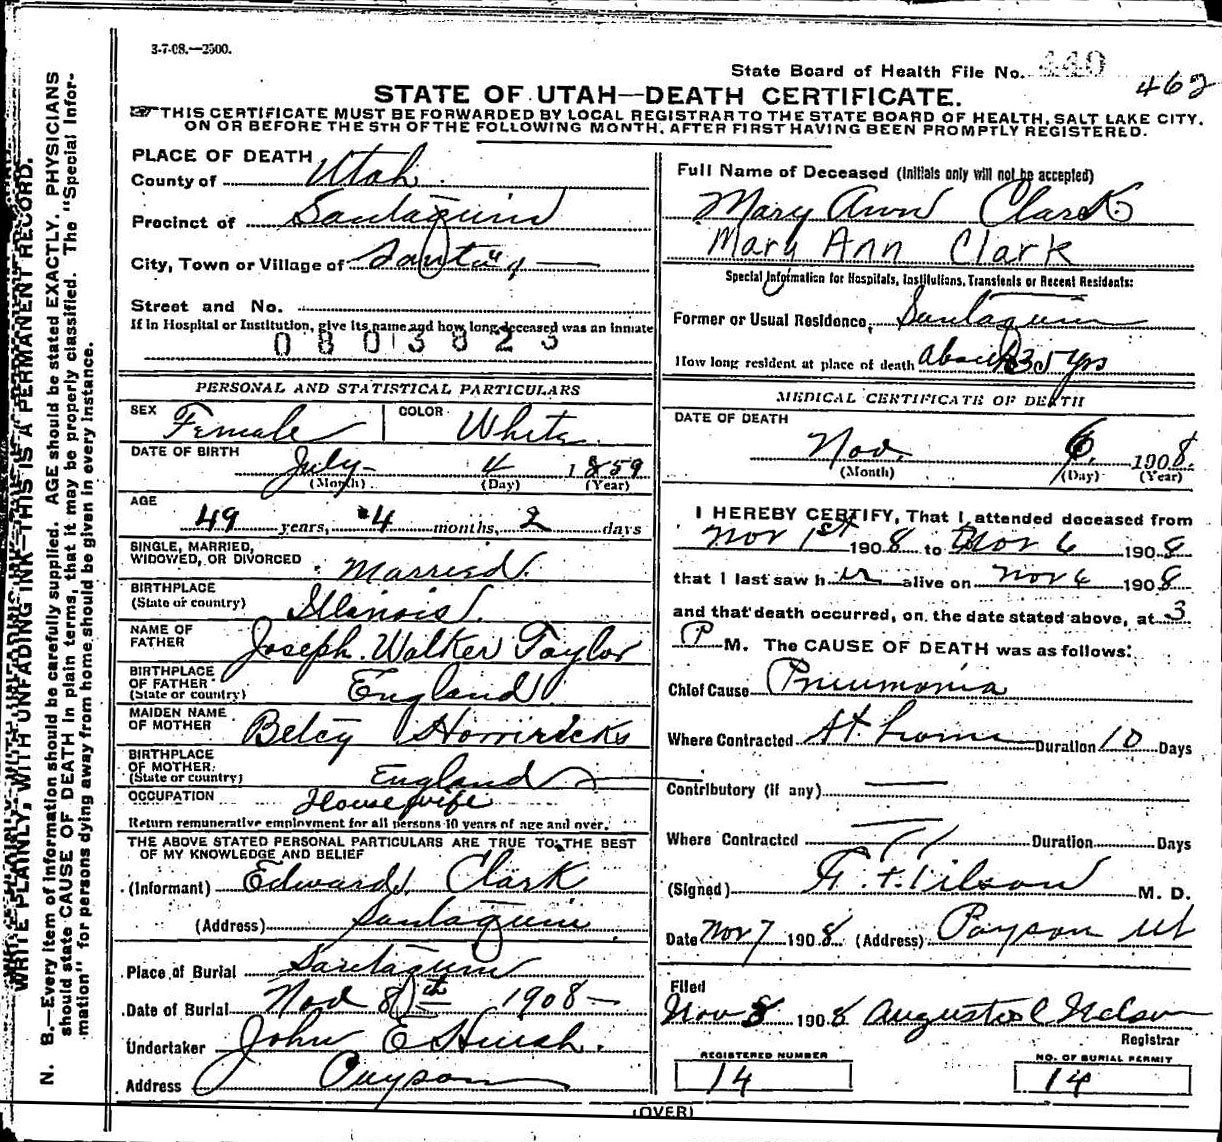 3-7-08.—2500.
State Board of Health File No. 440 462
STATE OF UTAH—DEATH CERTIFICATE.
THIS CERTIFICATE MUST BE FORWARDED BY LOCAL REGISTRAR TO THE STATE BOARD OF HEALTH, SALT LAKE CITY,
ON OR BEFORE THE 5TH OF THE FOLLOWING MONTH, AFTER FIRST HAVING BEEN PROMPTLY REGISTERED.
WRITE PLAINLY, WITH UNFADING INK—THIS IS A PERMANENT RECORD.
N. B.—Every item of information should be carefully supplied. AGE should be stated EXACTLY. PHYSICIANS
should state CAUSE OF DEATH in plain terms, that it may be properly classified. The "Special Infor-
mation" for persons dying away from home should be given in every instance.
PLACE OF DEATH
County of Utah
Precinct of Santaquin
City, Town or Village of Santaq
Street and No.
If in Hospital or Institution, give its name and how long deceased was an inmate
0803823
PERSONAL AND STATISTICAL PARTICULARS
SEX Female COLOR White
DATE OF BIRTH July 4 1859
(Month) (Day) (Year)
AGE
49 years, 4 months, 2 days
SINGLE, MARRIED,
WIDOWED, OR DIVORCED Married
BIRTHPLACE
(State or country) Illinois
NAME OF
FATHER Joseph Walker Taylor
BIRTHPLACE
OF FATHER
(State or country) England
MAIDEN NAME
OF MOTHER Betcy
BIRTHPLACE
OF MOTHER
(State or country) England
OCCUPATION House wife
Return remunerative employment for all persons 10 years of age and over.
THE ABOVE STATED PERSONAL PARTICULARS ARE TRUE TO THE BEST
OF MY KNOWLEDGE AND BELIEF
(Informant) Edward Clark
(Address) Santaquin
Place of Burial Santaquin
Date of Burial Nov 8th 1908
Undertaker John E Huish.
Address Payson
Full Name of Deceased (Initials only will not be accepted)
Mary Ann Clark
Mary Ann Clark
Special Information for Hospitals, Institutions, Transients or Recent Residents:
Former or Usual Residence, Santaquin
How long resident at place of death about 35 yrs
MEDICAL CERTIFICATE OF DEATH
DATE OF DEATH
Nov. 6 1908.
(Month) (Day) (Year)
I HEREBY CERTIFY, That I attended deceased from
Nov 1st 1908 to Nov 6 1908
that I last saw her alive on Nov 6 1908
and that death occurred, on the date stated above, at 3
P M. The CAUSE OF DEATH was as follows:
Chief Cause Pneumonia
Where Contracted At home Duration 10 Days
Contributory (if any)
Where Contracted Duration Days
(Signed) M. D.
Date Nov 7 1908 (Address) Payson Ut
Filed
Nov 8 1908 August C Nelson
Registrar
REGISTERED NUMBER
14
NO. OF BURIAL PERMIT
14
(OVER)